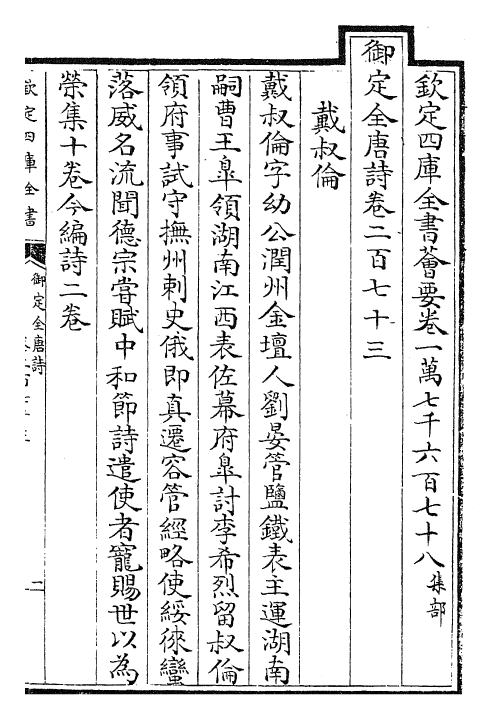 欽定四庫全書薈要卷一萬七千六百七十八集部
御定全唐詩卷二百七十三
戴叔倫
戴叔倫字幼公潤州金壇人劉晏管鹽鐵表主運湖南
嗣曹王臯領湖南江西表佐幕府臯討李希烈留叔倫
領府事試守撫州刺史俄即真遷容管經略使綏徠蠻
落威名流聞德宗嘗賦中和節詩遣使者寵賜世以為
榮集十卷今編詩二卷
欽定四庫全書
御定全唐詩